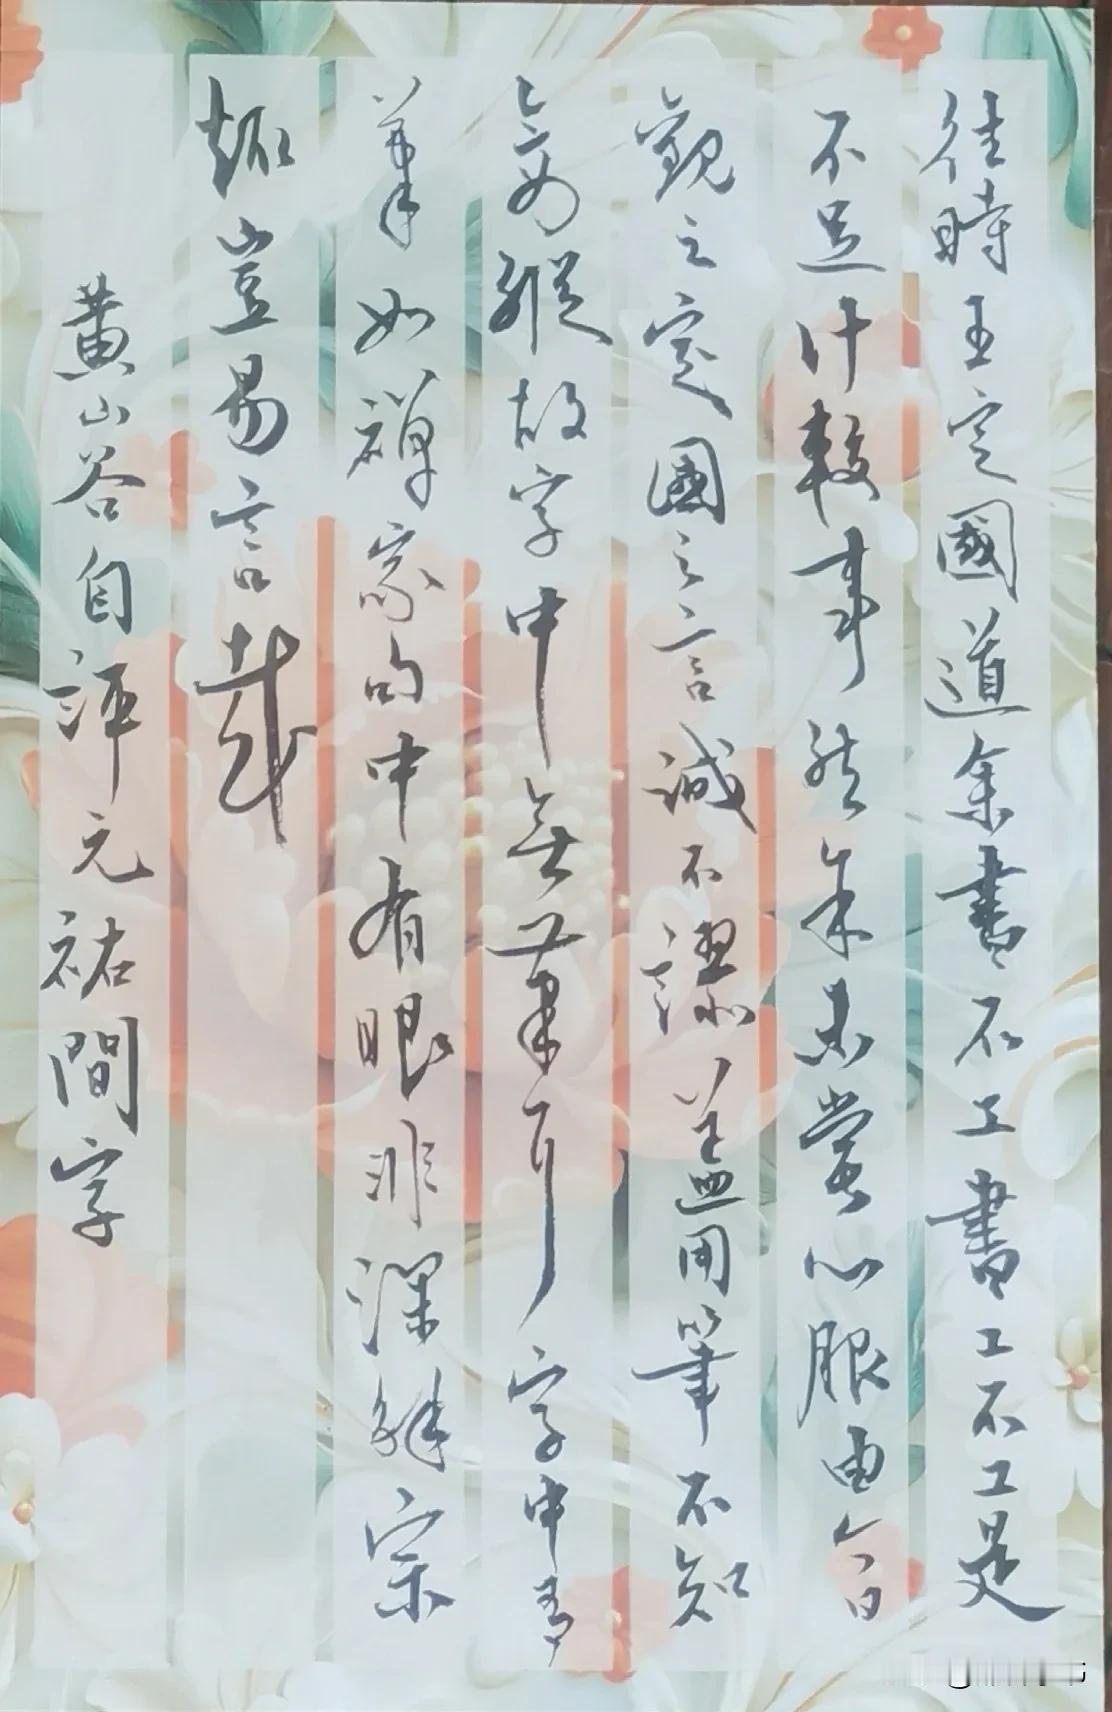 往時王定國道余書不工書工不工是
不足計較事然余未嘗心服由今日
觀之定國之言誠不謬蓋用筆不知
禽縱故字中無筆耳字中有
筆如禪家句中有眼非深解宗
趣豈易言哉
黃山谷自評元祐間字